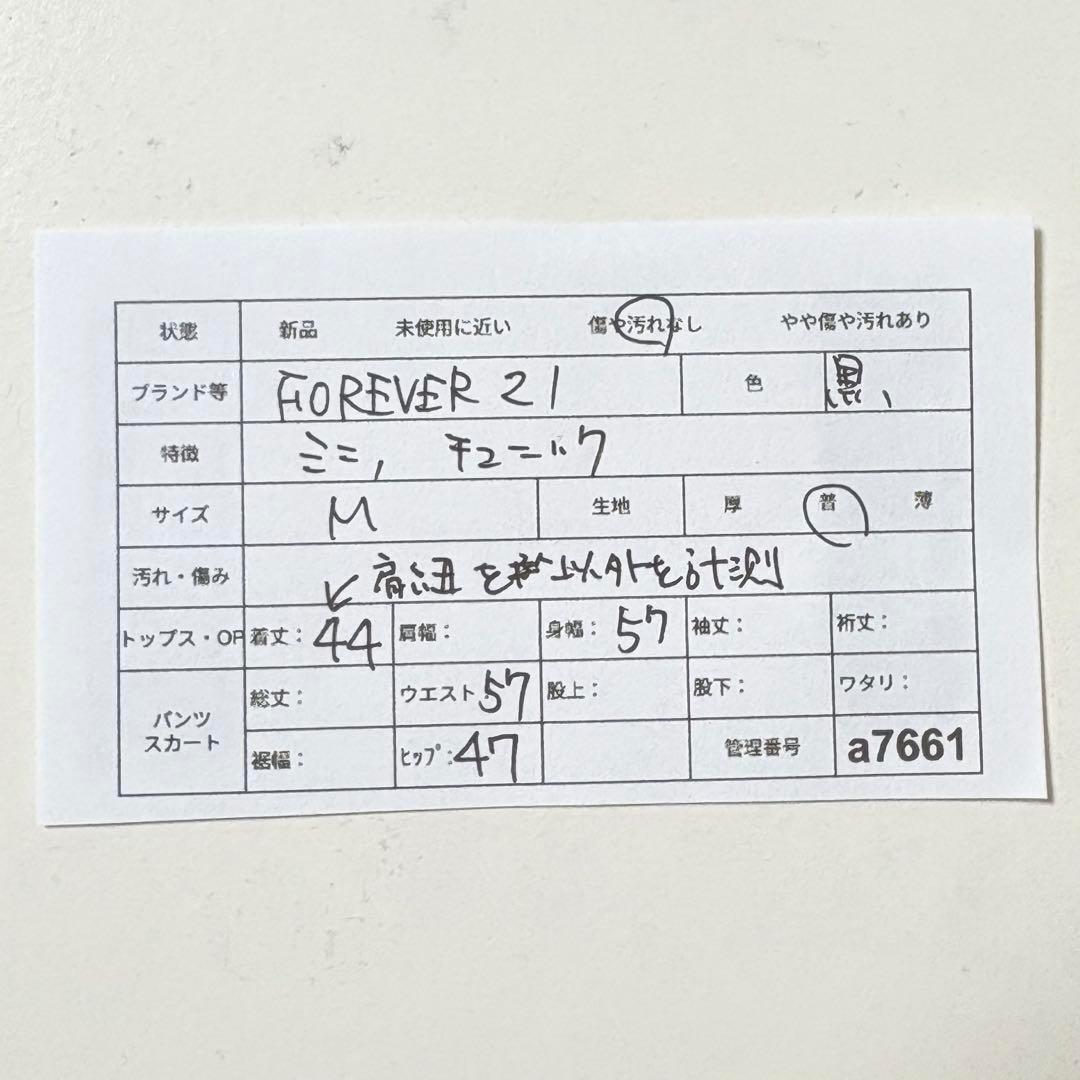 状態 新品 未使用に近い 傷や汚れなし やや傷や汚れあり
ブランド等 FOREVER 21 色 黒、
特徴 ミニ, チュニック
サイズ M 生地 厚 普 薄
汚れ・傷み 肩紐を 以外を計測
トップス・OP 着丈：44 肩幅： 身幅：57 袖丈： 裄丈：
パンツ スカート 総丈： ウエスト：57 股上： 股下： ワタリ：
裾幅： ヒップ：47 管理番号 a7661